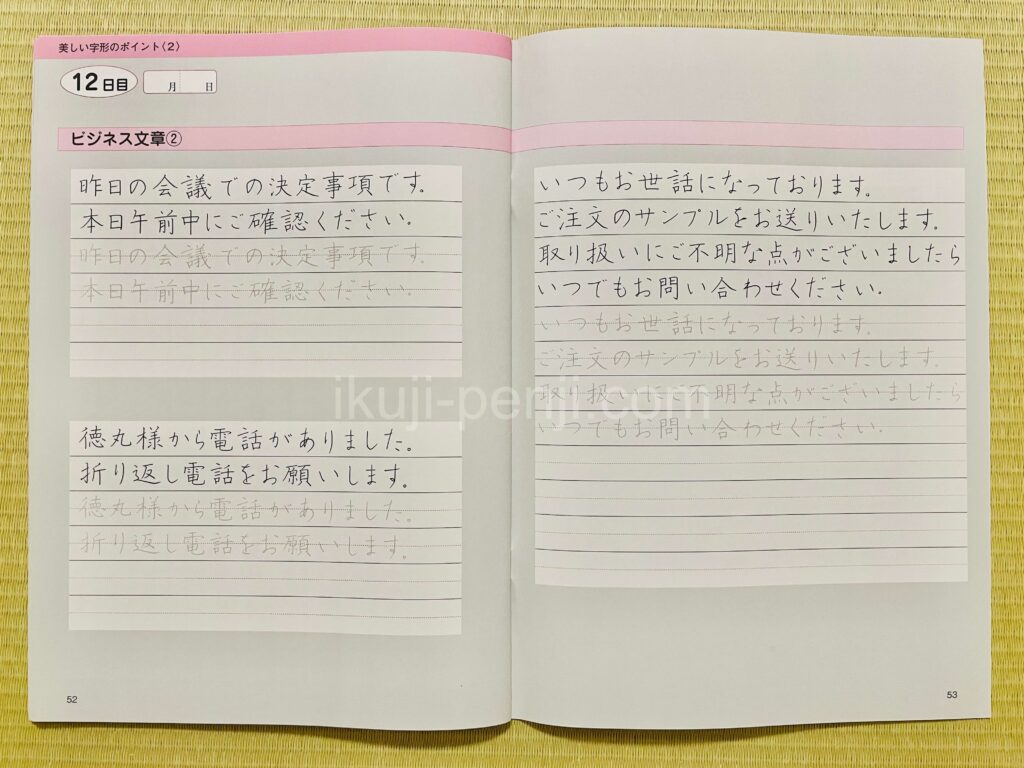 美しい字形のポイント〈2〉
12日目
月 日
ビジネス文章②
昨日の会議での決定事項です。
本日午前中にご確認ください。
昨日の会議での決定事項です。
本日午前中にご確認ください。
徳丸様から電話がありました。
折り返し電話をお願いします。
徳丸様から電話がありました。
折り返し電話をお願いします。
52
いつもお世話になっております。
ご注文のサンプルをお送りいたします。
取り扱いにご不明な点がございましたら
いつでもお問い合わせください。
いつもお世話になっております。
ご注文のサンプルをお送りいたします。
取り扱いにご不明な点がございましたら
いつでもお問い合わせください。
53
ikuji-penji.com